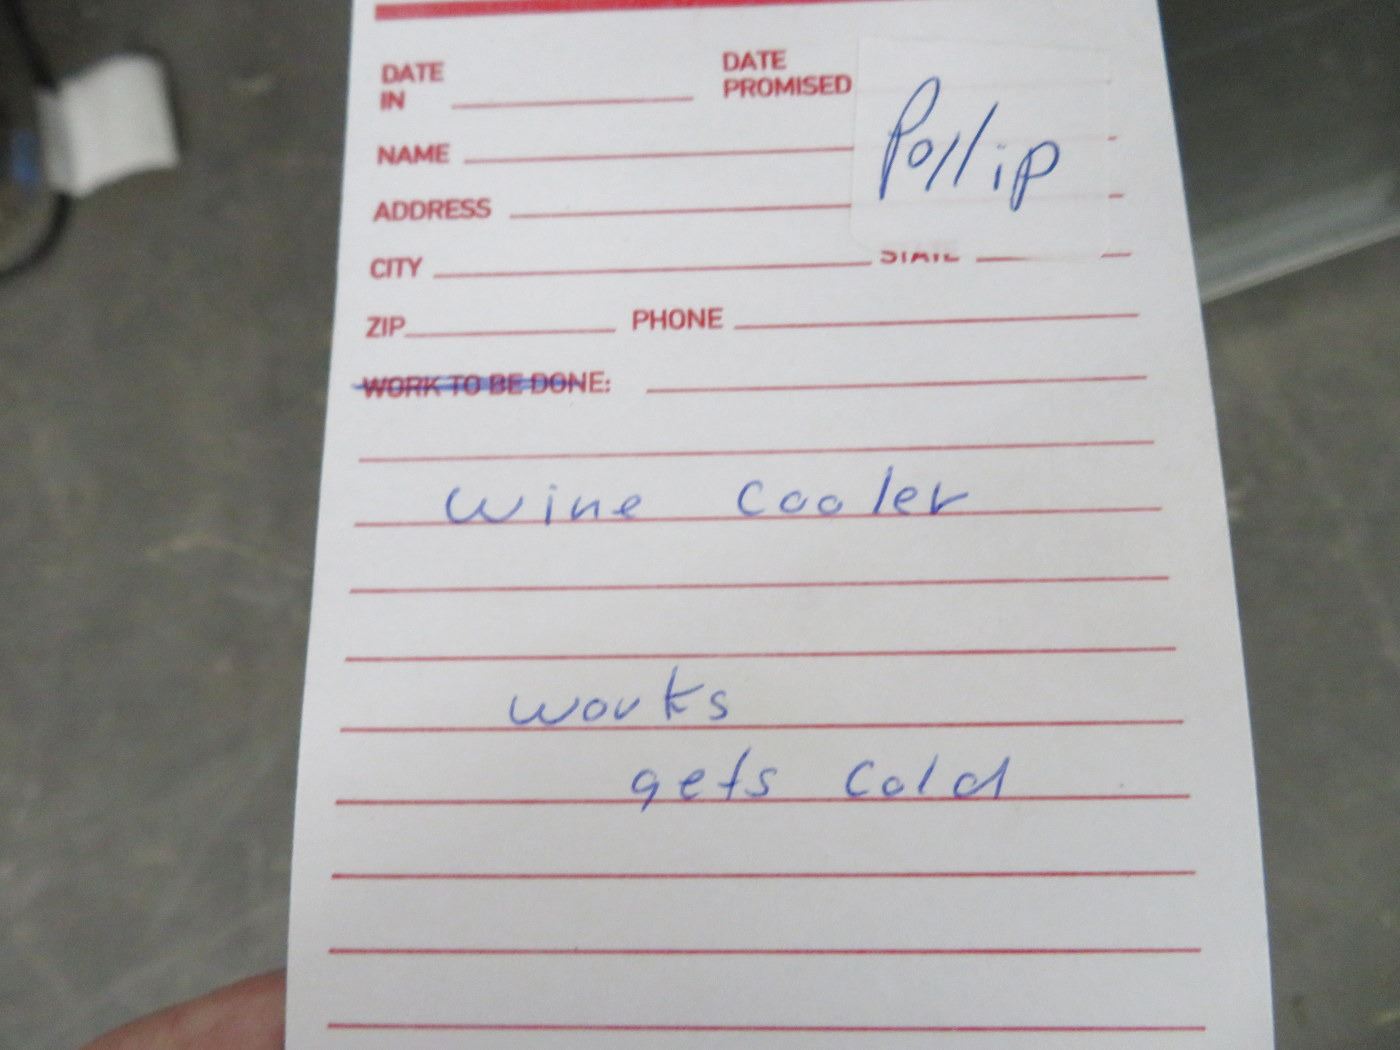 DATE IN
DATE PROMISED
Pollip
NAME
ADDRESS
CITY STATE
ZIP PHONE
WORK TO BE DONE:
wine cooler
works
gets cold